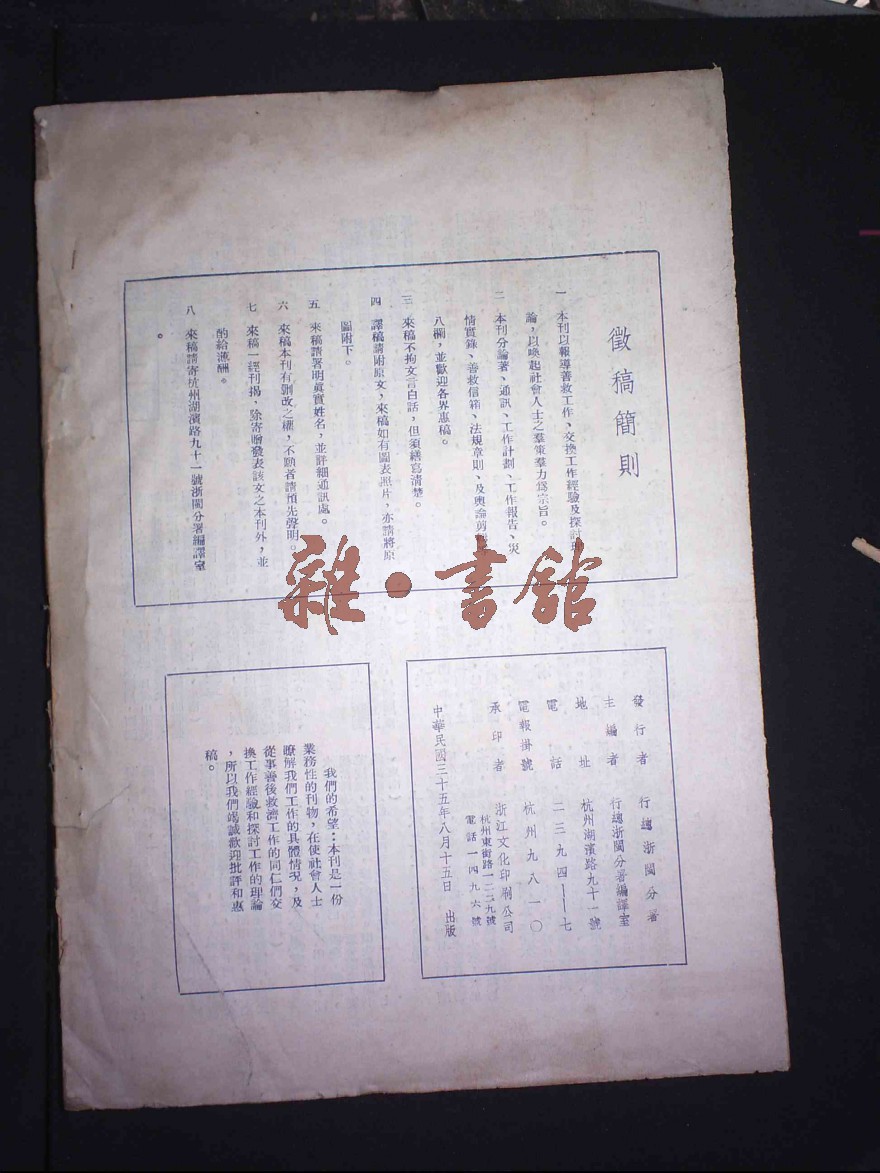 徵稿簡則
一　本刊以報導善救工作、交換工作經驗及探討理
論，以喚起社會人士之羣策羣力爲宗旨。
二　本刊分論著、通訊、工作計劃、工作報告、災
情實錄、善救信箱、法規章則、及輿論剪
八欄，並歡迎各界惠稿。
三　來稿不拘文言白話，但須繕寫清楚。
四　譯稿請附原文，來稿如有圖表照片，亦請將原
圖附下。
五　來稿請署明眞實姓名，並詳細通訊處。
六　來稿本刊有刪改之權，不願者請預先聲明。
七　來稿一經刊揭，除寄贈發表該文之本刊外，並
酌給薄酬。
八　來稿請寄杭州湖濱路九十一號浙閩分署編譯室
。
發行者　行總浙閩分署
主編者　行總浙閩分署編譯室
地址　杭州湖濱路九十一號
電話　二三九四——七
電報掛號　杭州九八一〇
承印者　浙江文化印刷公司
杭州東街路一二二九號
電話一四九六號
中華民國三十五年八月十五日　出版
我們的希望：本刊是一份
業務性的刊物，在使社會人士
瞭解我們工作的具體情況，及
從事善後救濟工作的同仁們交
換工作經驗和探討工作的理論
，所以我們竭誠歡迎批評和惠
稿。
雜·書館